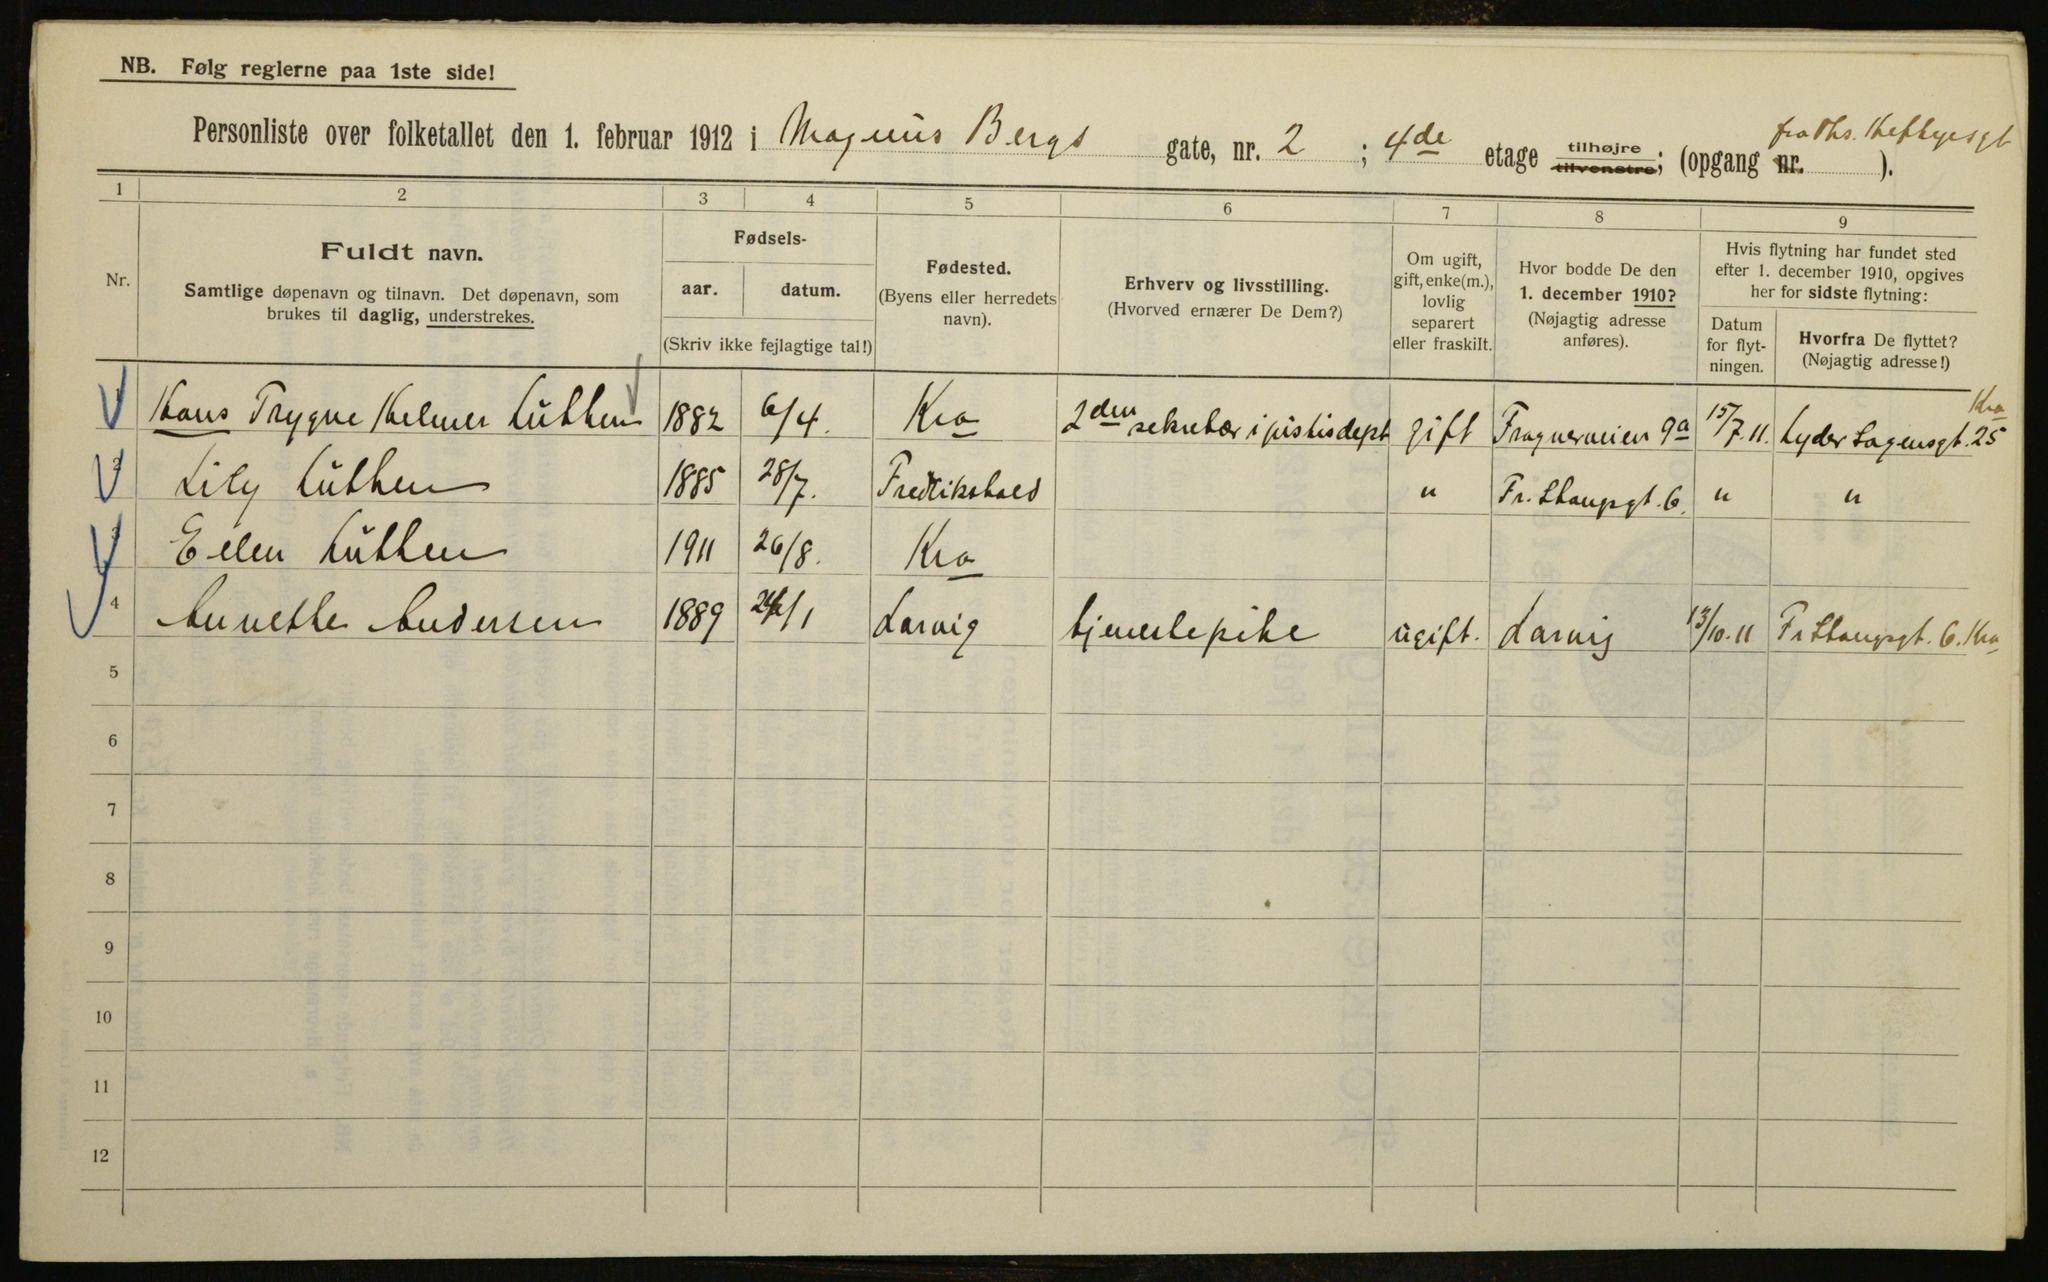 NB. Følg reglerne paa 1ste side!
Personliste over folketallet den 1. februar 1912 i Magnus Bergs gate, nr. 2 ; 4de etage tilhøjre tilvenstre; (opgang nr. fra Ths. Heftyesgt ).
1 2 3 4 5 6 7 8 9
Nr.
Fuldt navn.
Samtlige døpenavn og tilnavn. Det døpenavn, som
brukes til daglig, understrekes.
Fødsels-
aar. datum.
(Skriv ikke fejlagtige tal!)
Fødested.
(Byens eller herredets
navn).
Erhverv og livsstilling.
(Hvorved ernærer De Dem?)
Om ugift,
gift, enke(m.),
lovlig
separert
eller fraskilt.
Hvor bodde De den
1. december 1910?
(Nøjagtig adresse
anføres).
Hvis flytning har fundet sted
efter 1. december 1910, opgives
her for sidste flytning:
Datum
for flyt-
ningen.
Hvorfra De flyttet?
(Nøjagtig adresse!)
1 Hans Trygve Helmer Lüthen 1882 6/4. Kra 2den sekretær i justisdept gift Frognerveien 9a 15/7.11. Lyder Sagensgt. 25 Kra
2 Lily Lüthen 1885 28/7. Fredrikshald " Fr. Stangsgt. 6. " "
3 Ellen Lüthen 1911 26/8. Kra
4 Annethe Andersen 1889 /1 Larvig tjenestepike ugift. Larvig 13/10.11 Fr Stangsgt. 6. Kra
5
6
7
8
9
10
11
12